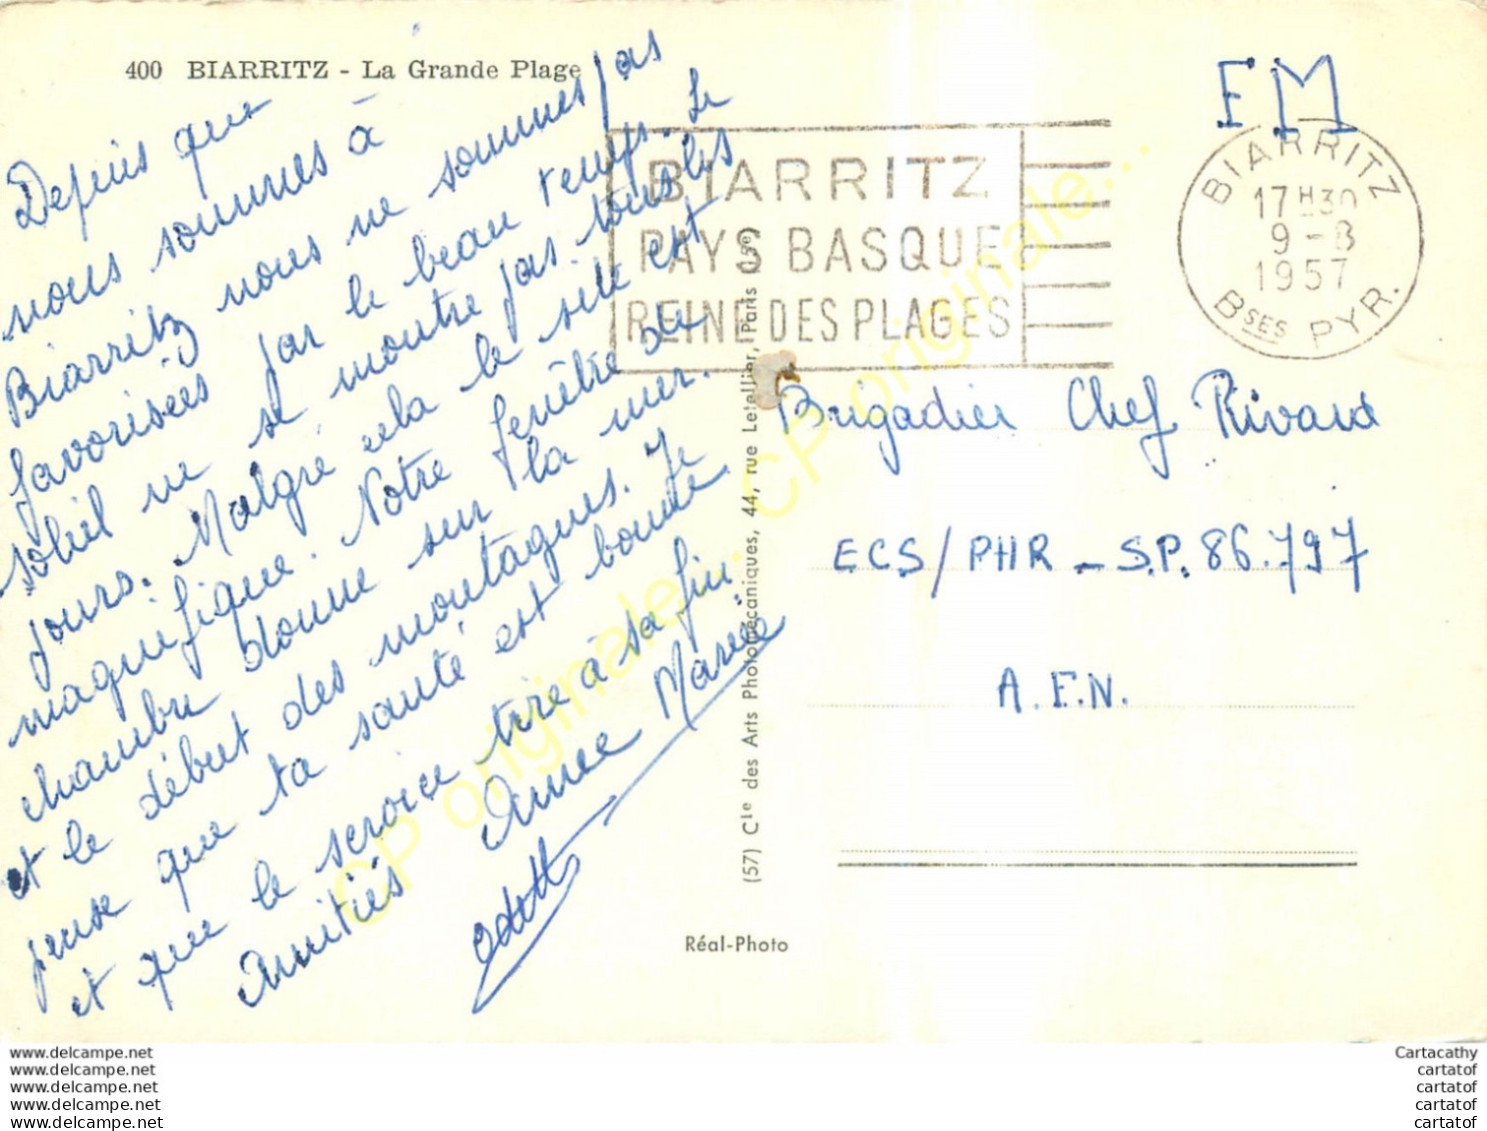 400 BIARRITZ - La Grande Plage
Depuis que
nous sommes à
Biarritz nous ne sommes pas
favorisées par le beau temps. Le
soleil ne se montre pas tous les
jours. Malgré cela le site est
magnifique. Notre fenêtre de
chambre donne sur la mer.
et le début des montagnes. Je
pense que ta santé est bonne
et que le service tire à sa fin
Amitiés Anne Marie
Odette
BIARRITZ
PAYS BASQUE
REINE DES PLAGES
FM
BIARRITZ
17H30
9-8
1957
BSES PYR.
Brigadier Chef Rivaud
ECS/PHR - S.P. 86.797
A.F.N.
(57) Cie des Arts Photomécaniques, 44, rue Letellier, Paris 15e
Réal-Photo
CP originale... CP originale... CP originale...
www.delcampe.net
www.delcampe.net
www.delcampe.net
www.delcampe.net
www.delcampe.net
Cartacathy
cartatof
cartatof
cartatof
cartatof